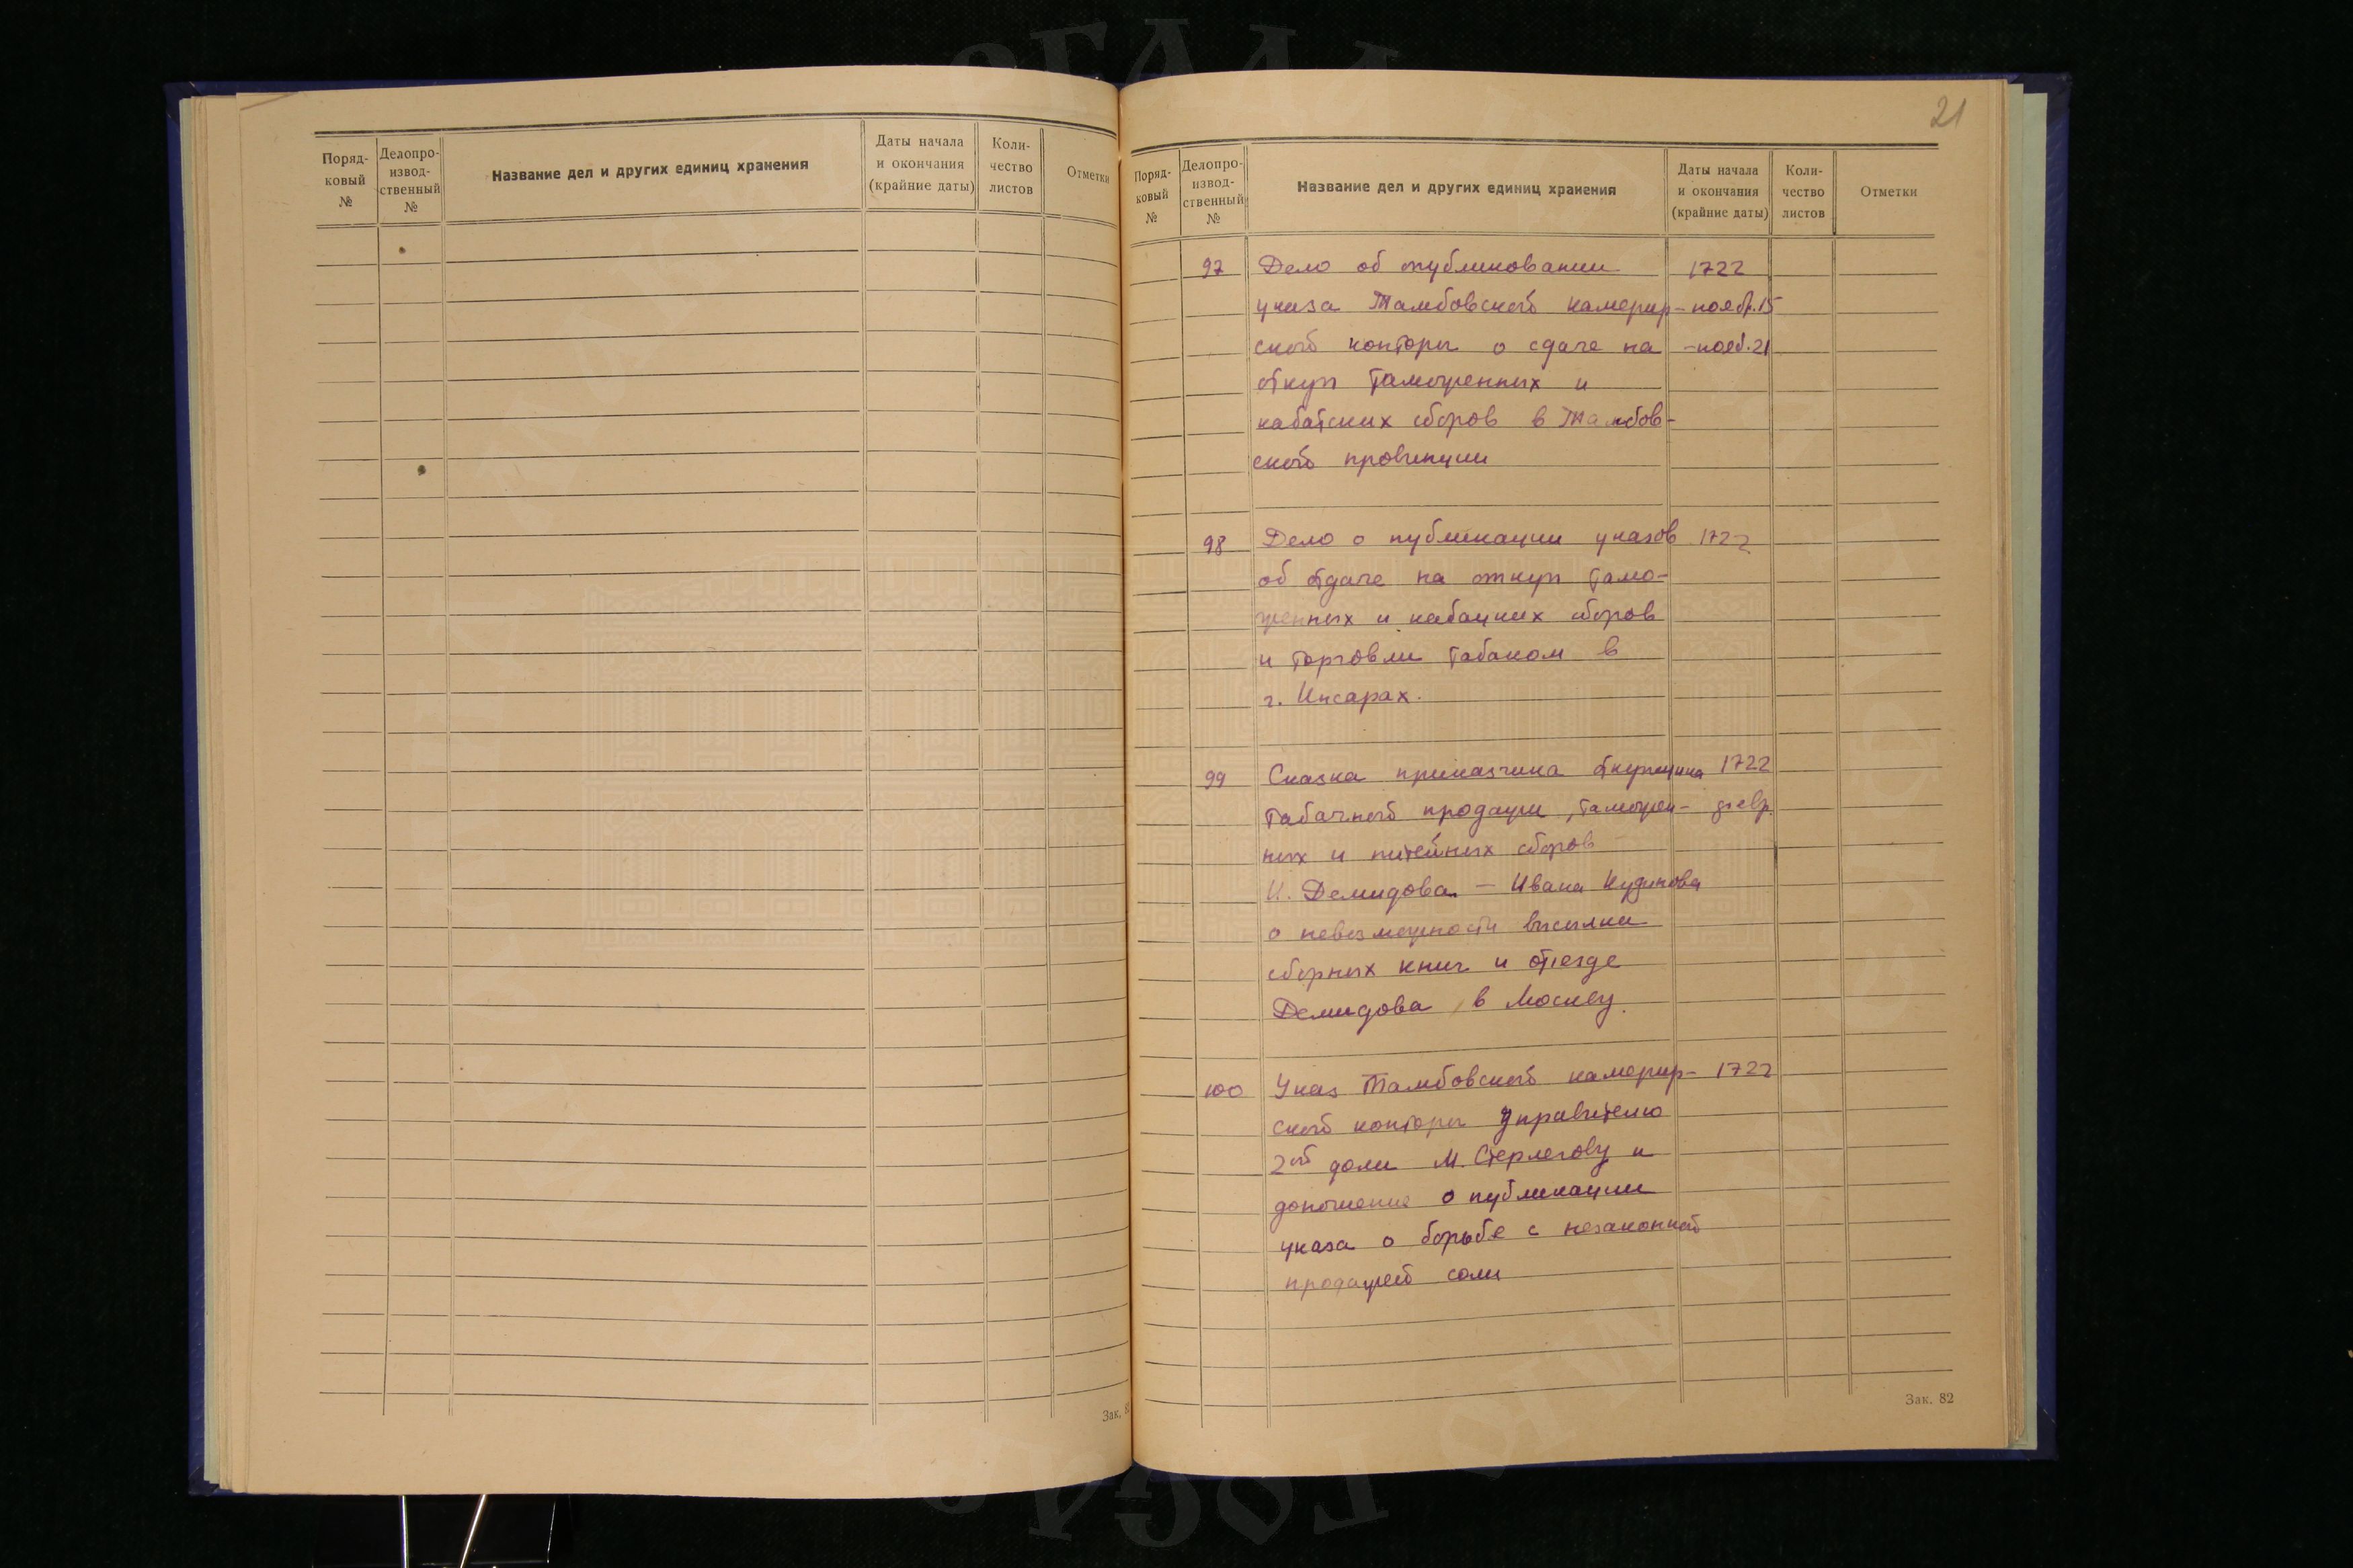 Поряд-
ковый
№
Делопро-
извод-
ственный
№
Название дел и других единиц хранения
Даты начала
и окончания
(крайние даты)
Коли-
чество
листов
Отметки
Зак.
21
Поряд-
ковый
№
Делопро-
извод-
ственный
№
Название дел и других единиц хранения
Даты начала
и окончания
(крайние даты)
Коли-
чество
листов
Отметки
97 Дело об опубликовании 1722
указа Тамбовской камерир- - ноябр. 15
ской конторы о сдаче на - нояб. 21
откуп таможенных и
кабатских сборов в Тамбов-
ской провинции
98 Дело о публикации указов 1722
об отдаче на откуп тамо-
женных и кабацких сборов
и торговли табаком в
г. Инсарах.
99 Сказка приказчика откупщика 1722
табачной продажи, таможен- февр.
ных и питейных сборов
И. Демидова - Ивана Кудинова
о невозможности высылки
сборных книг и отъезде
Демидова в Москву.
100 Указ Тамбовской камерир- 1722
ской конторы управителю
2ой доли М. Стерлегову и
доношение о публикации
указа о борьбе с незаконной
продажей соли
Зак. 82